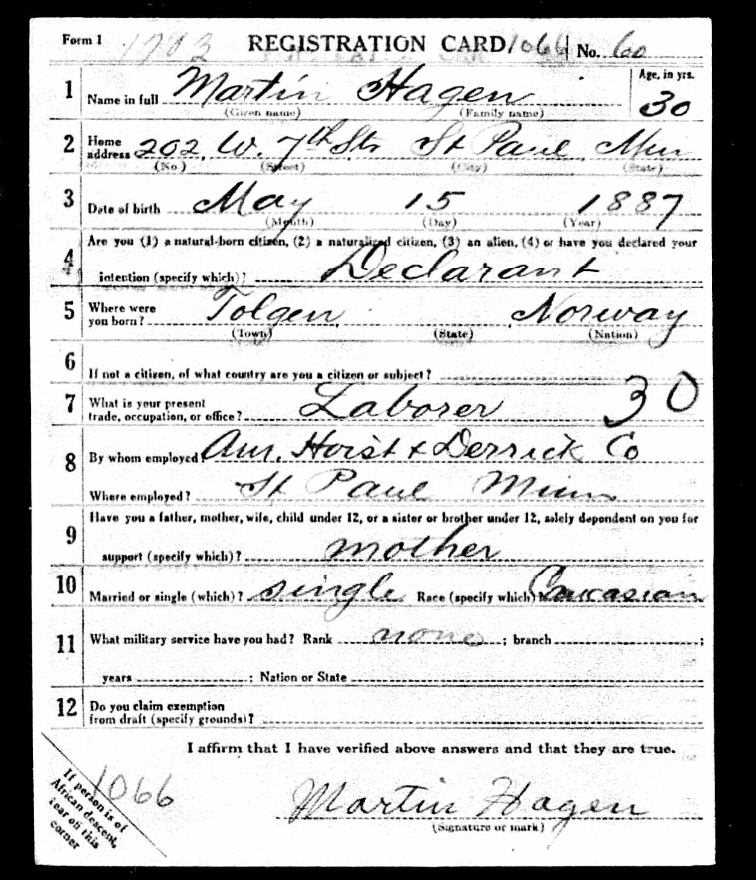 Form 1 1783 REGISTRATION CARD 1066 No. 60
1 Name in full Martin Hagen Age, in yrs. 30
(Given name) (Family name)
2 Home address 202 W. 7th St. St Paul Min
(No.) (Street) (City) (State)
3 Date of birth May 15 1887
(Month) (Day) (Year)
4 Are you (1) a natural-born citizen, (2) a naturalized citizen, (3) an alien, (4) or have you declared your
intention (specify which)? Declarant
5 Where were you born? Tolgen Norway
(Town) (State) (Nation)
6 If not a citizen, of what country are you a citizen or subject?
7 What is your present trade, occupation, or office? Laborer 30
8 By whom employed? Am. Hoist & Derrick Co
Where employed? St Paul Minn
9 Have you a father, mother, wife, child under 12, or a sister or brother under 12, solely dependent on you for
support (specify which)? mother
10 Married or single (which)? single Race (specify which)? Caucasian
11 What military service have you had? Rank none ; branch ;
years ; Nation or State
12 Do you claim exemption
from draft (specify grounds)?
I affirm that I have verified above answers and that they are true.
1066
Martin Hagen
(Signature or mark)
If person is of
African descent,
tear off this
corner